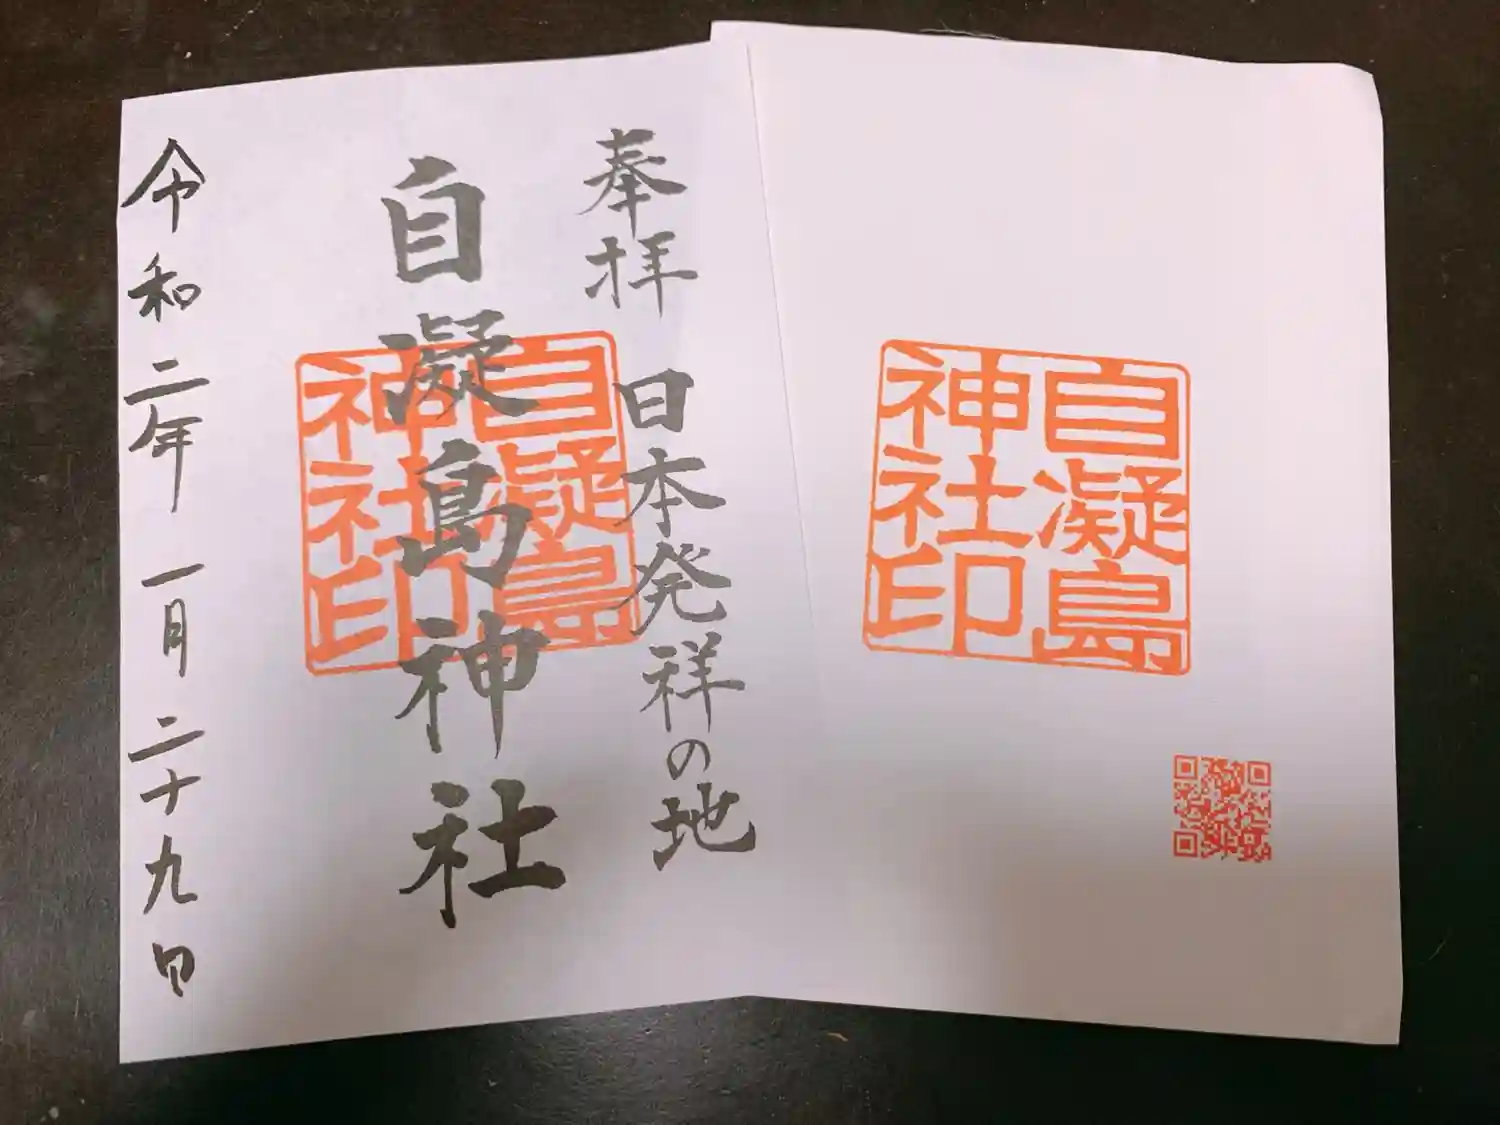 奉拝 日本発祥の地
自凝島神社
令和二年一月二十九日
自凝島
神社印
自凝島
神社印